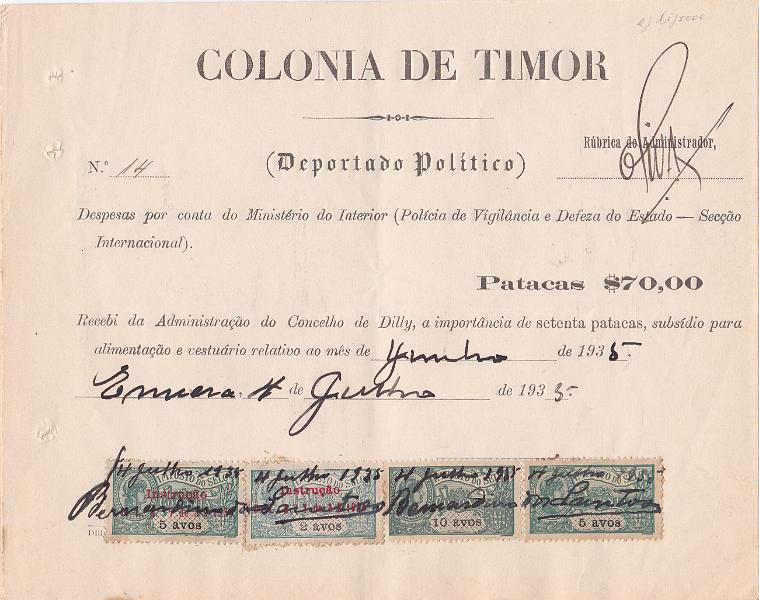 COLONIA DE TIMOR
Rúbrica do Administrador,
N.º 14
(Deportado Político)
Despesas por conta do Ministério do Interior (Polícia de Vigilância e Defeza do Estado — Secção
Internacional).
Patacas $70,00
Recebi da Administração do Concelho de Dilly, a importância de setenta patacas, subsídio para
alimentação e vestuário relativo ao mês de Junho de 1935.
Ermera, 4 de Julho de 1935.
4 Julho 1935 4 Julho 1935 4 Julho 1935 4 Julho 1935
IMPOSTO DO SELO
Instrução Instrução
Bernardino dos Santos Bernardino dos Santos
5 avos 2 avos 10 avos 5 avos